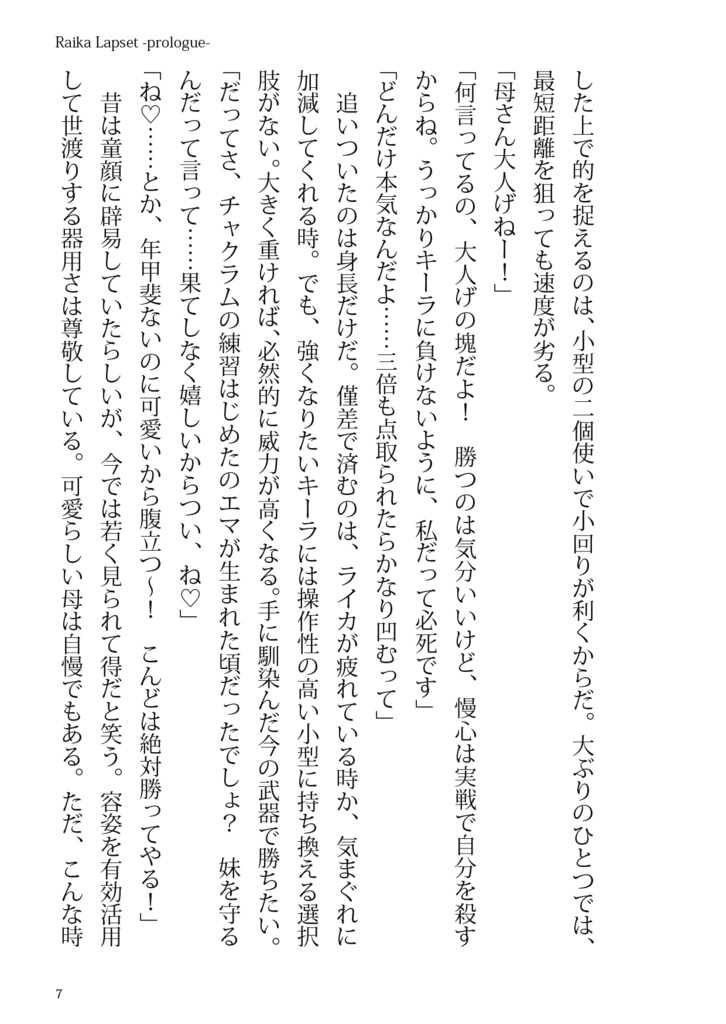 Raika Lapset -prologue-
した上で的を捉えるのは、小型の二個使いで小回りが利くからだ。大ぶりのひとつでは、
最短距離を狙っても速度が劣る。
「母さん大人げねー！」
「何言ってるの、大人げの塊だよ！　勝つのは気分いいけど、慢心は実戦で自分を殺す
からね。うっかりキーラに負けないように、私だって必死です」
「どんだけ本気なんだよ……三倍も点取られたらかなり凹むって」
　追いついたのは身長だけだ。僅差で済むのは、ライカが疲れている時か、気まぐれに
加減してくれる時。でも、強くなりたいキーラには操作性の高い小型に持ち換える選択
肢がない。大きく重ければ、必然的に威力が高くなる。手に馴染んだ今の武器で勝ちたい。
「だってさ、チャクラムの練習はじめたのエマが生まれた頃だったでしょ？　妹を守る
んだって言って……果てしなく嬉しいからつい、ね♡」
「ね♡……とか、年甲斐ないのに可愛いから腹立つ～！　こんどは絶対勝ってやる！」
　昔は童顔に辟易していたらしいが、今では若く見られて得だと笑う。容姿を有効活用
して世渡りする器用さは尊敬している。可愛らしい母は自慢でもある。ただ、こんな時
7